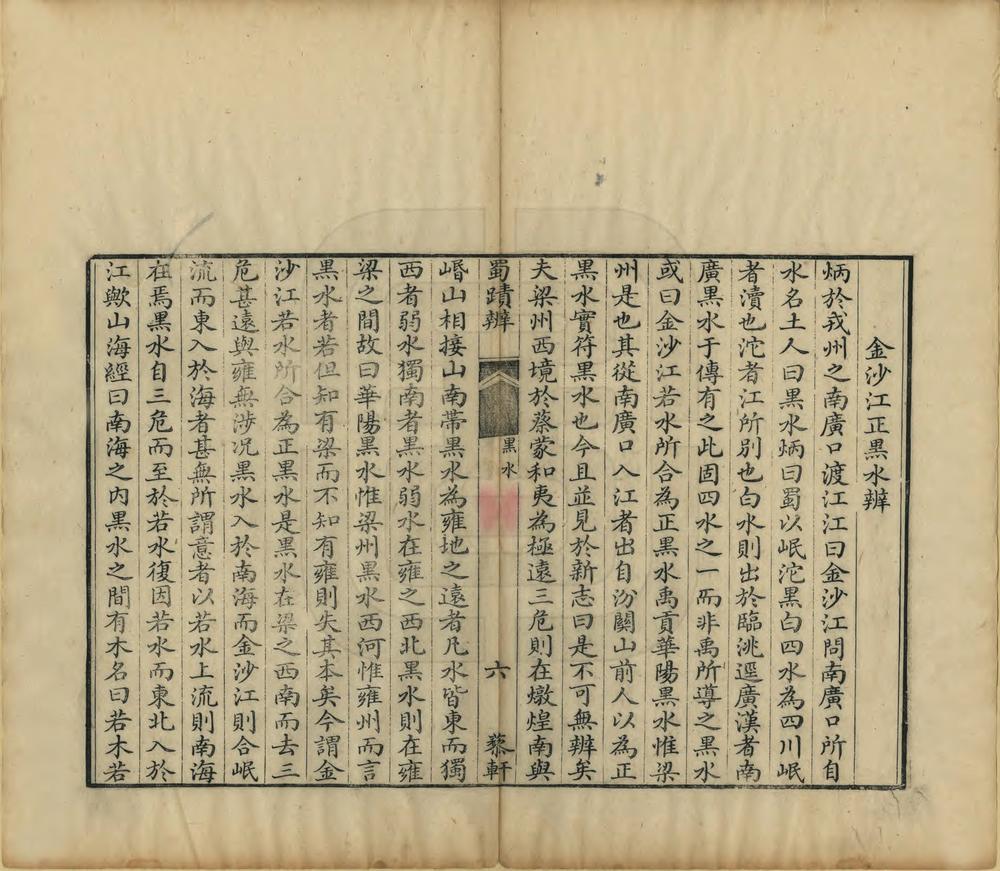 金沙江正黑水辨
炳於戎州之南廣口渡江江曰金沙江問南廣口所自
水名土人曰黑水炳曰蜀以岷沱黑白四水為四川岷
者瀆也沱者江所別也白水則出於臨洮逕廣漢者南
廣黑水于傳有之此固四水之一而非禹所導之黑水
或曰金沙江若水所合為正黑水禹貢華陽黑水惟梁
州是也其從南廣口入江者出自汾關山前人以為正
黑水實符黑水也今且並見於新志曰是不可無辨矣
夫梁州西境於蔡蒙和夷為極遠三危則在燉煌南與
蜀蹟辨 黑水 六 藜軒
㟭山相接山南帶黑水為雍地之遠者凡水皆東而獨
西者弱水獨南者黑水弱水在雍之西北黑水則在雍
梁之間故曰華陽黑水惟梁州黑水西河惟雍州而言
黑水者若但知有梁而不知有雍則失其本矣今謂金
沙江若水所合為正黑水是黑水在梁之西南而去三
危甚遠與雍無涉况黑水入於南海而金沙江則合岷
流而東入於海者甚無所謂意者以若水上流則南海
在焉黑水自三危而至於若水復因若水而東北入於
江歟山海經曰南海之内黑水之間有木名曰若木若